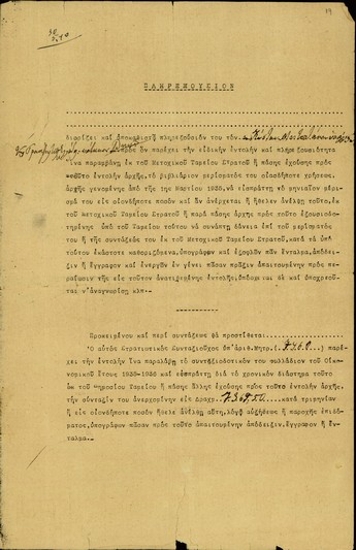 19
ΠΛΗΡΕΞΟΥΣΙΟΝ
διορίζει και αποκαθιστά πληρεξούσιόν του τόν
πρός όν παρέχει τήν ειδικήν εντολήν και πληρεξουσιότητα
ίνα παραλάβη εκ του Μετοχικού Ταμείου Στρατού ή πάσης εχούσης πρός
τούτο εντολήν αρχής, το βιβλιάριον μερίσματος του οιασδήποτε χρήσεως,
αρχής γενομένης από της 1ης Μαρτίου 1935, νά εισπράττη τό μηνιαίον μέρισ
μά του εις οιονδήποτε ποσόν και άν ανέρχεται ή ήθελεν ανέλθη τούτο, εκ
του Μετοχικού Ταμείου Στρατού ή παρά πάσης αρχής πρός τούτο εξουσιοδο-
τημένης υπό του Ταμείου τούτου νά συνάπτη δάνεια επί του μερίσματός
του ή της συντάξεώς του εκ του Μετοχικού Ταμείου Στρατού, κατά τά υπό
τούτου εκάστοτε καθοριζόμενα, υπογράφων και εξοφλών πάν ένταλμα, από-
δειξιν ή έγγραφον και ενεργών εν γένει πάσαν πράξιν απαιτουμένην πρός πε-
ραίωσιν της εις τούτον ανατιθεμένης εντολής,
ται ν'αναγνωρίση κλπ.-
Προκειμένου και περί συντάξεως θά προστίθεται
Ο αυτός Στρατιωτικός Συνταξιούχος υπ'αριθ.Μητρ.( 7469 ) παρέ-
χει τήν εντολήν ίνα παραλάβη τό συνταξιοδοτικόν του φυλλάδιον του Οικο-
νομικού έτους 1935-1936 και εισπράττη διά τό χρονικόν διάστημα τούτο
εκ του Δημοσίου Ταμείου ή πάσης άλλης εχούσης πρός τούτο εντολήν αρχής,
τήν σύνταξίν του ανερχομένην εις Δραχ. κατά τριμηνίαν
ή εις οιονδήποτε ποσόν ήθελε ανέλθη αύτη, λόγω αυξήσεως ή παροχής επιδό-
ματος, υπογράφων πάσαν πρός τούτο απαιτουμένην απόδειξιν, έγγραφον ή έν-
ταλμα.-